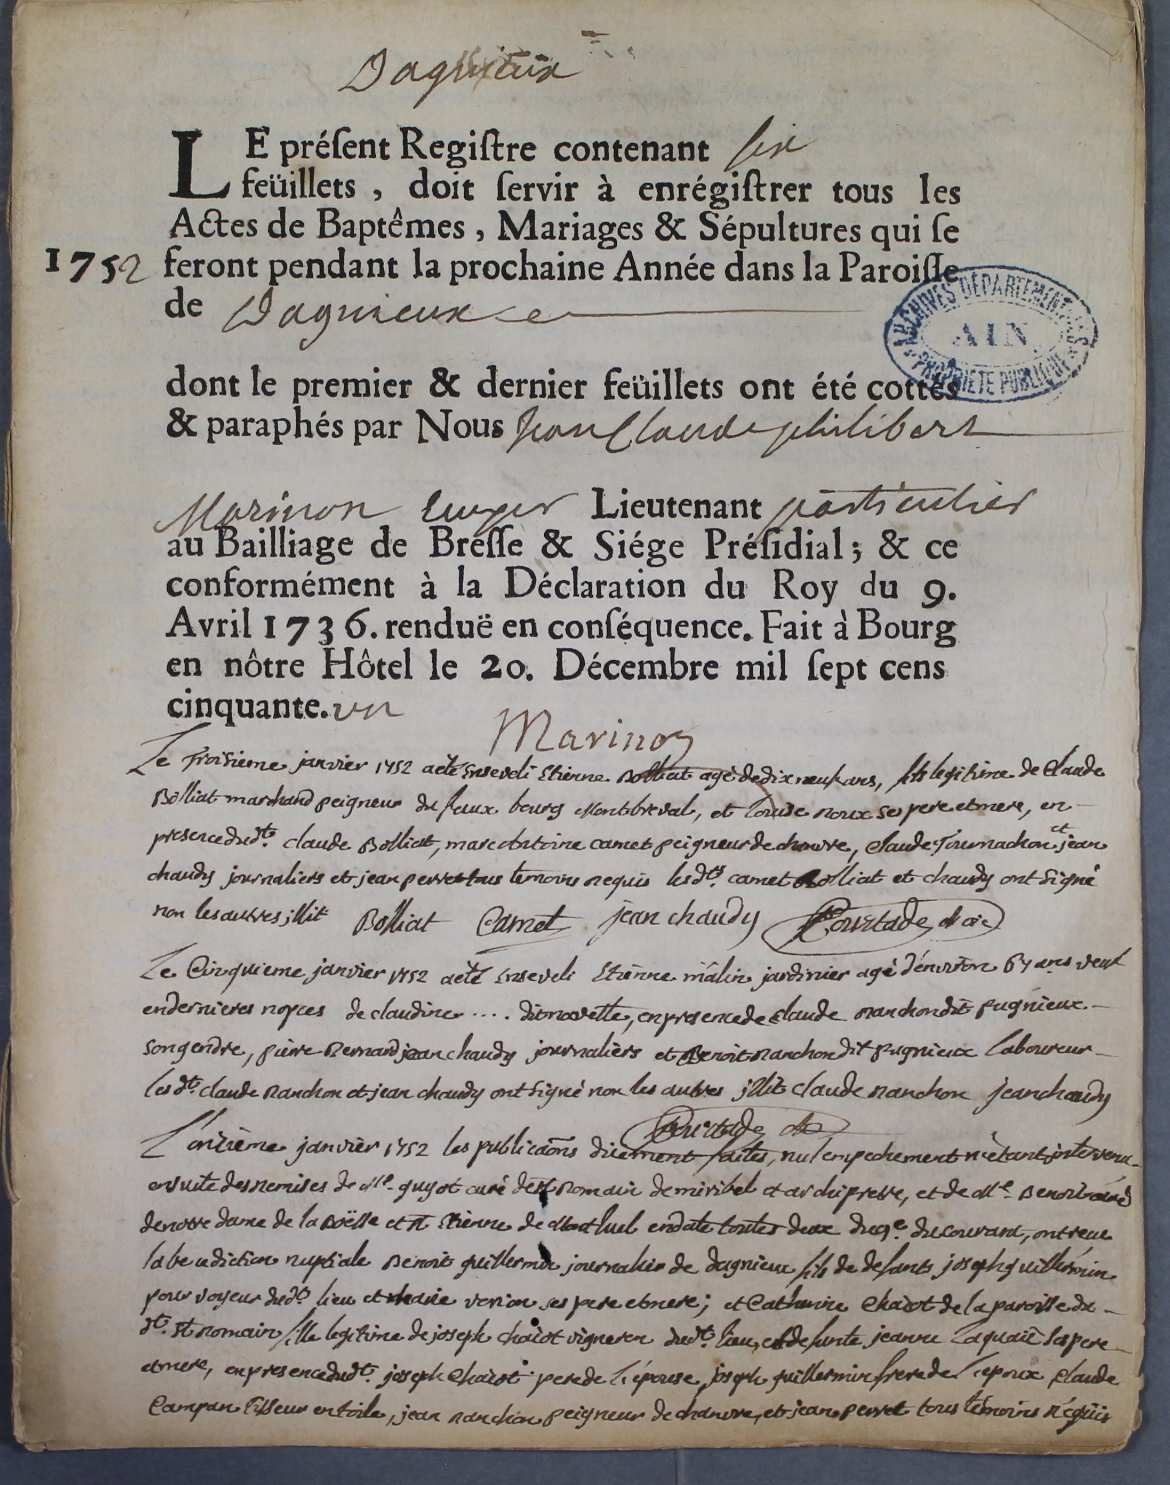 Dagnieux
LE préſent Regiſtre contenant six
feüillets, doit ſervir à enrégiſtrer tous les
Actes de Baptêmes, Mariages & Sépultures qui ſe
1752 feront pendant la prochaine Année dans la Paroiſſe
de Dagnieux
ARCHIVES DÉPARTEMENTALES
AIN
PROPRIÉTÉ PUBLIQUE
dont le premier & dernier feüillets ont été cottés
& paraphés par Nous Jean Claude philibert
Marinon Lieutenant particulier
au Bailliage de Breſſe & Siége Préſidial; & ce
conformément à la Déclaration du Roy du 9.
Avril 1736. renduë en conſéquence. Fait à Bourg
en nôtre Hôtel le 20. Décembre mil ſept cens
cinquante. un
Marinon
Le troisieme janvier 1752 a èté enseveli Etienne Bolliat agé de dix neuf ans, fils legitime de Claude
Bolliat marchand peigneur du faux bourg Montbreval, et Louise roux ses pere et mere, en
presence dudt. claude Bolliat, marc Antoine camet peigneur de chanvre, Claude Tournachon et jean
chaudy journaliers et jean perret tous temoins requis lesdts. camet Bolliat et chaudy ont signé
non les autres illit Bolliat Camet jean chaudy Courtade
Le Cinquieme janvier 1752 a èté enseveli Etienne mâlin jardinier agé d'environ 64 ans veuf
en dernieres nopces de claudine .... dit novelle, en presence de claude ranchon dit pugnieux
son gendre, pierre Bernard jean chaudy journaliers et Benoit ranchon dit pugnieux laboureur
lesdts. claude ranchon et jean chaudy ont signé non les autres illit claude ranchon jean chaudy
Courtade
L'onzième janvier 1752 les publicaons duement faites, nul empechement n'ètant intervenu
ensuite des remises de Mre. guyot curé de st Romain de miribel et archipretre, et de Mre. Benoit curé
de notre dame de la Boësse et st Etienne de Montluel en date toutes deux du 9e. du courant, ont reçu
la benediction nuptiale Benoit guillermin journalier de dagnieux fils de defunts joseph guillermin
pourvoyeur dudt. lieu et marie verion ses pere et mere; et Catherine Chaiot de la paroisse du
dt. St Romain fille legitime de joseph chaiot vigneron dudt. lieu, et defunte jeanne ses pere
et mere, en presence dudt. joseph Chaiot pere de l'épouse, joseph guillermin frere de l'epoux Claude
Campan tisseur en toile, jean ranchon peigneur de chanvre, et jean perret tous témoins réquis